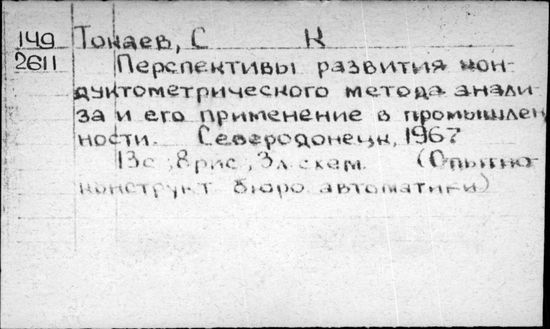 149 Токаев, С К
2611 Перспективы развития кон-
дуктометрического метода анали-
за и его применение в промышлен
ности. Северодонецк, 1967
13с, 8рис, 3л.схем. (Опытно-
конструкт бюро автоматики)